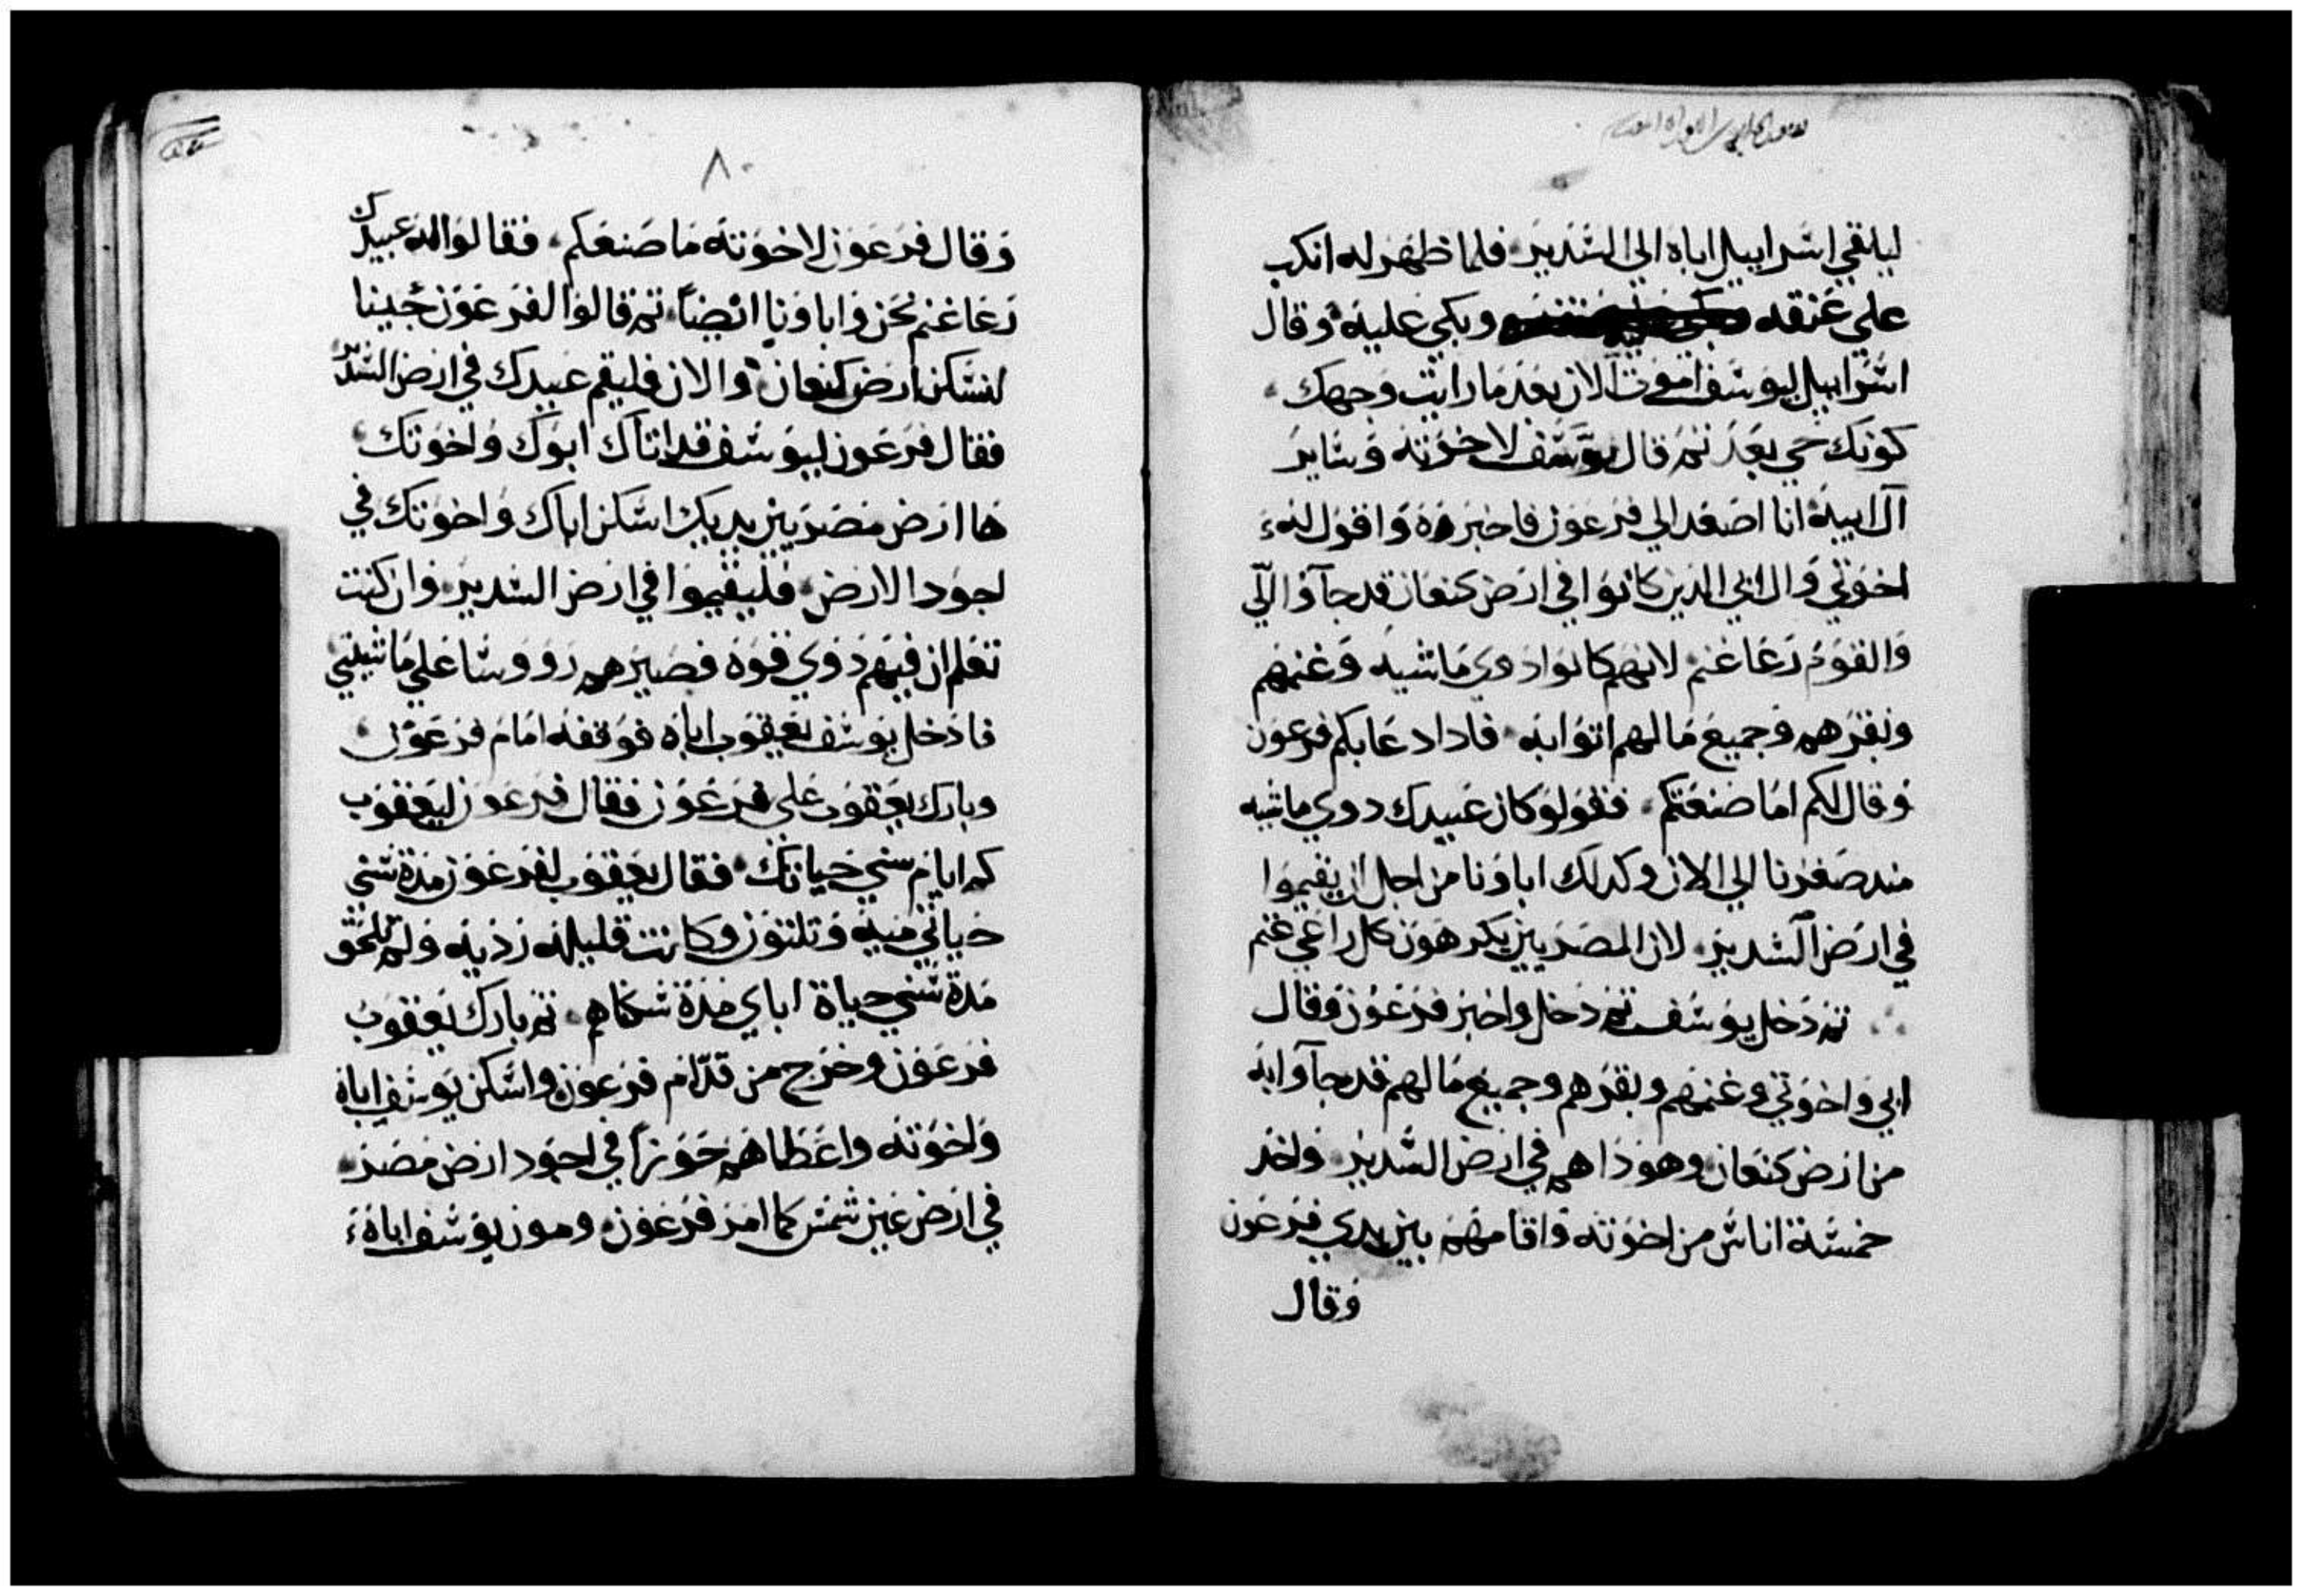 ليلقي اسراييل اباه الي السدير فلما ظهر له انكب
علي عنقه وبكي عليه وقال
اسراييل ليوسف اموت الان بعد ما رايت وجهك
كونك حي بعد ثم قال يوسف لاخوته وساير
آل ابيه انا اصعد الي فرعون فاخبره واقول له
اخوتي وال ابي الدين كانوا في ارض كنعان قد جآوا الي
والقوم رعا غنم لانهم كانوا دوي ماشيه وغنمهم
وبقرهم وجميع ما لهم اتوا به فادا دعا بكم فرعون
وقال لكم اما صنعتكم فقولو كان عبيدك دوي ماشيه
مند صغرنا الي الان وكدلك اباونا من اجل ان يقيموا
في ارض السدير لان المصريين يكرهون كل راعي غنم
ثم دخل يوسف ثم دخل واخبر فرعون وقال
ابي واخوتي وغنمهم وبقرهم وجميع ما لهم قد جآوا به
من ارض كنعان وهوذا هم في ارض السدير واخد
خمسة اناس من اخوته واقامهم بين يدي فرعون
وقال
٨٠
وقال فرعون لاخوته ما صنعكم فقالوا له عبيدك
رعا غنم نحن واباونا ايضاً ثم قالوا لفرعون جينا
لنسكن ارض كنعان والان فليقم عبيدك في ارض السدير
فقال فرعون ليوسف قد اتاك ابوك واخوتك
ها ارض مصر بين يديك اسكن اباك واخوتك في
اجود الارض فليقيموا في ارض السدير وان كنت
تعلم ان فيهم ذوي قوة فصيرهم رووسا علي ماشيتي
فادخل يوسف يعقوب اباه فوقفه امام فرعون
وبارك يعقوب علي فرعون فقال فرعون ليعقوب
كم ايام سني حياتك فقال يعقوب لفرعون مدة سني
حياتي ميه وتلتون وكانت قليله رديه ولم تلحق
مدة سني حياة اباي مدة سكناهم ثم بارك يعقوب
فرعون وخرج من قدّام فرعون واسكن يوسف اباه
واخوته واعطاهم حوزاً في اجود ارض مصر
في ارض عين شمس كما امر فرعون ومون يوسف اباه